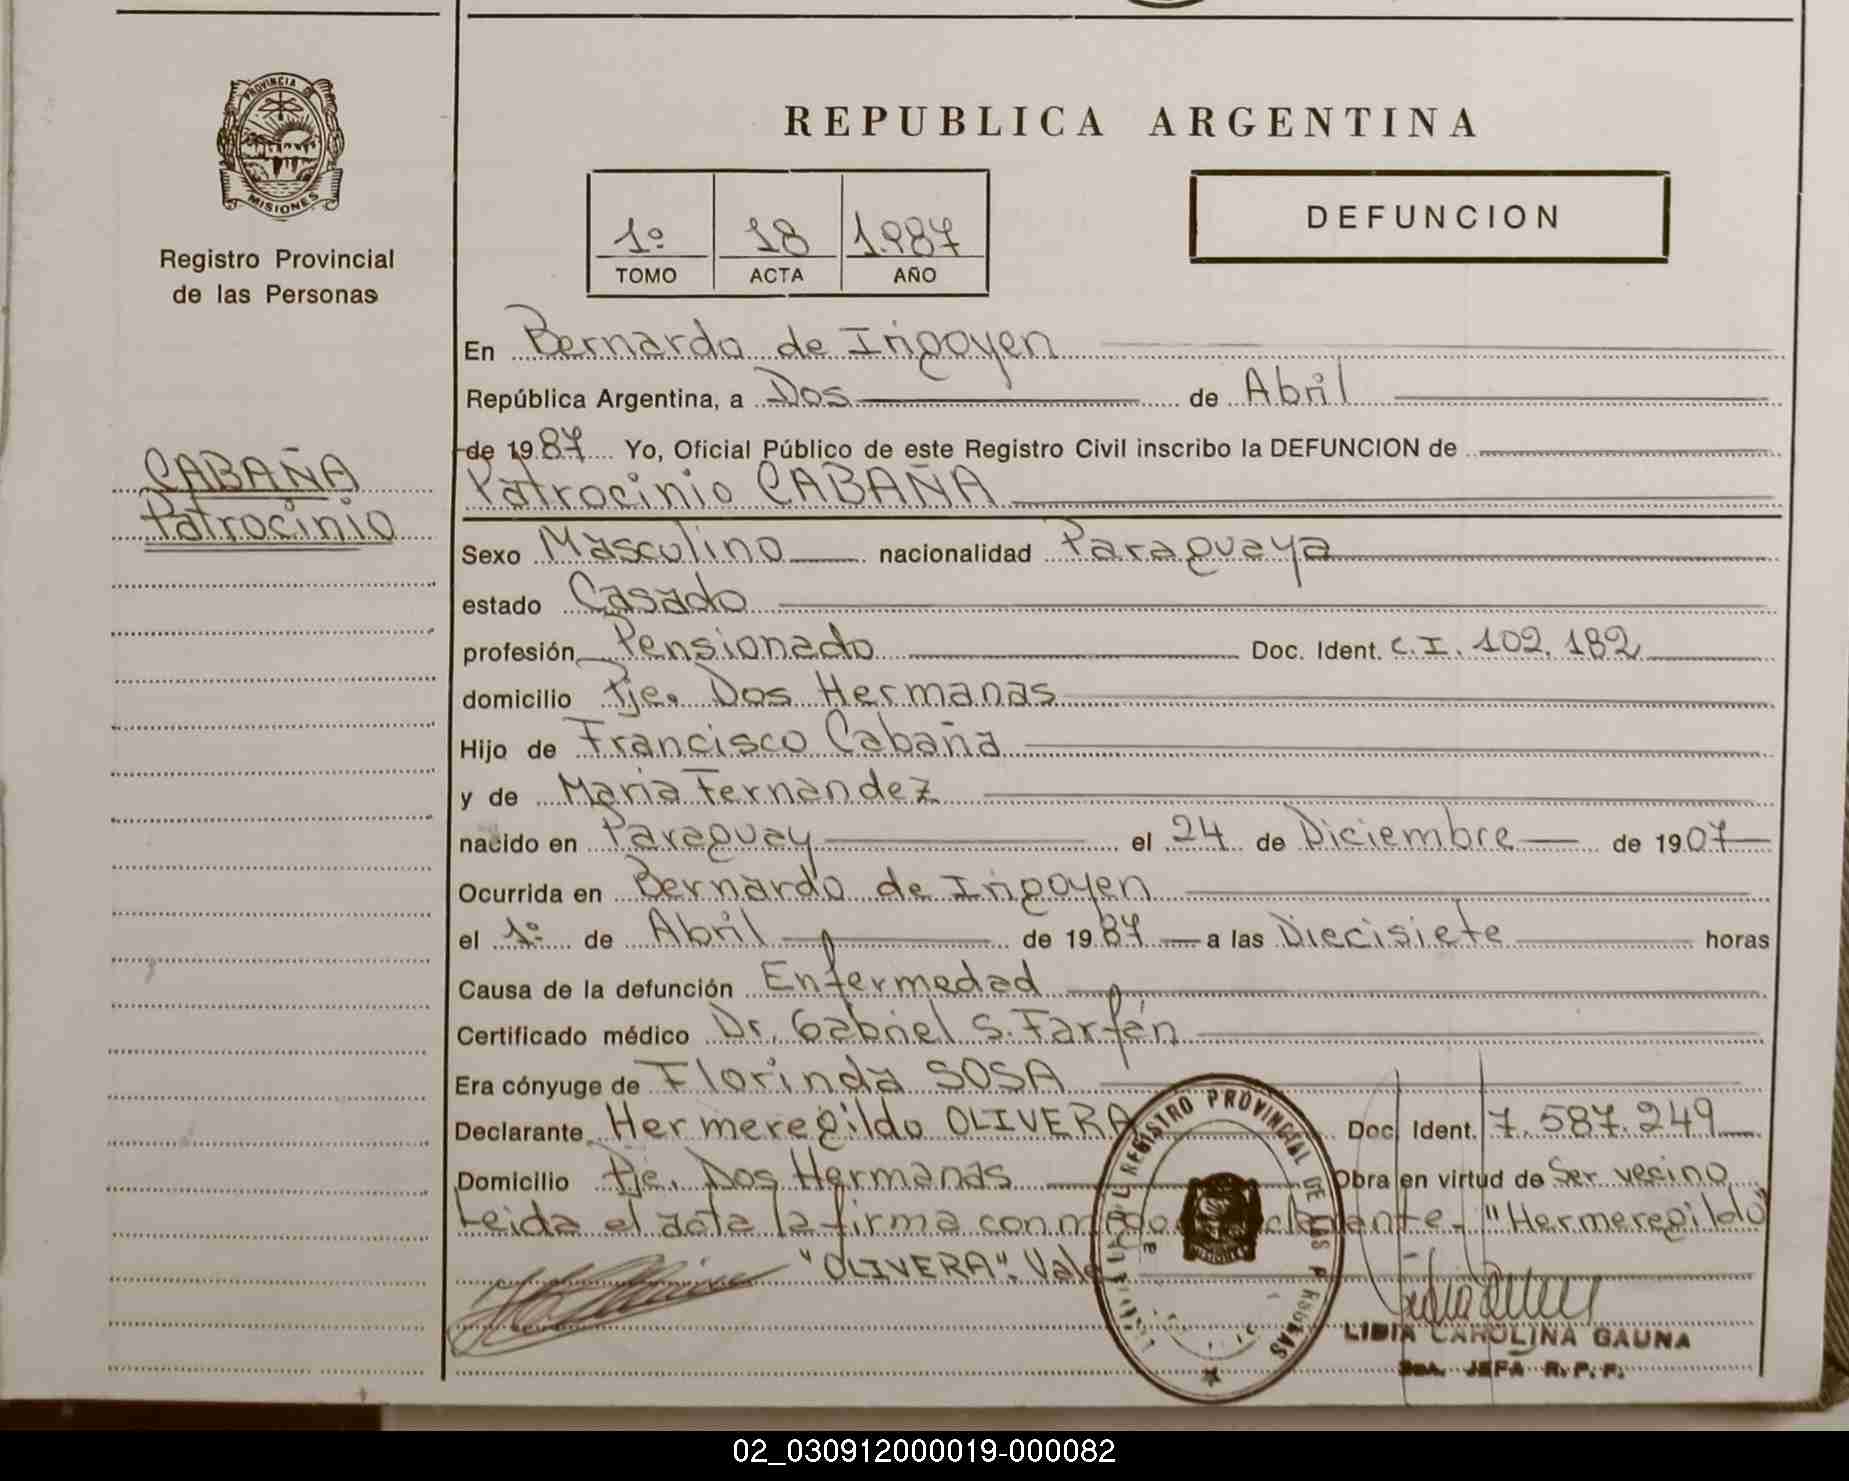 PROVINCIA DE
MISIONES
Registro Provincial
de las Personas
CABAÑA
Patrocinio
REPUBLICA ARGENTINA
1º 18 1987
TOMO ACTA AÑO
DEFUNCION
En Bernardo de Irigoyen
República Argentina, a Dos de Abril
de 1987 Yo, Oficial Público de este Registro Civil inscribo la DEFUNCION de
Patrocinio CABAÑA
Sexo Masculino nacionalidad Paraguaya
estado Casado
profesión Pensionado Doc. Ident. C.I. 102.182
domicilio Pje. Dos Hermanas
Hijo de Francisco Cabaña
y de Maria Fernandez
nacido en Paraguay el 24 de Diciembre de 1907
Ocurrida en Bernardo de Irigoyen
el 1º de Abril de 1987 a las Diecisiete horas
Causa de la defunción Enfermedad
Certificado médico Dr. Gabriel S. Farfán
Era cónyuge de Florinda SOSA
Declarante Hermeregildo OLIVERA Doc. Ident. 7.587.249
Domicilio Pje. Dos Hermanas Obra en virtud de Ser vesino
Leida el acta la firma conmigo declarante. "Hermeregildo"
"OLIVERA". Vale
REGISTRO PROVINCIAL DE LAS PERSONAS
MISIONES
LIDIA CAROLINA GAUNA
JEFA R. P. P.
02_030912000019-000082